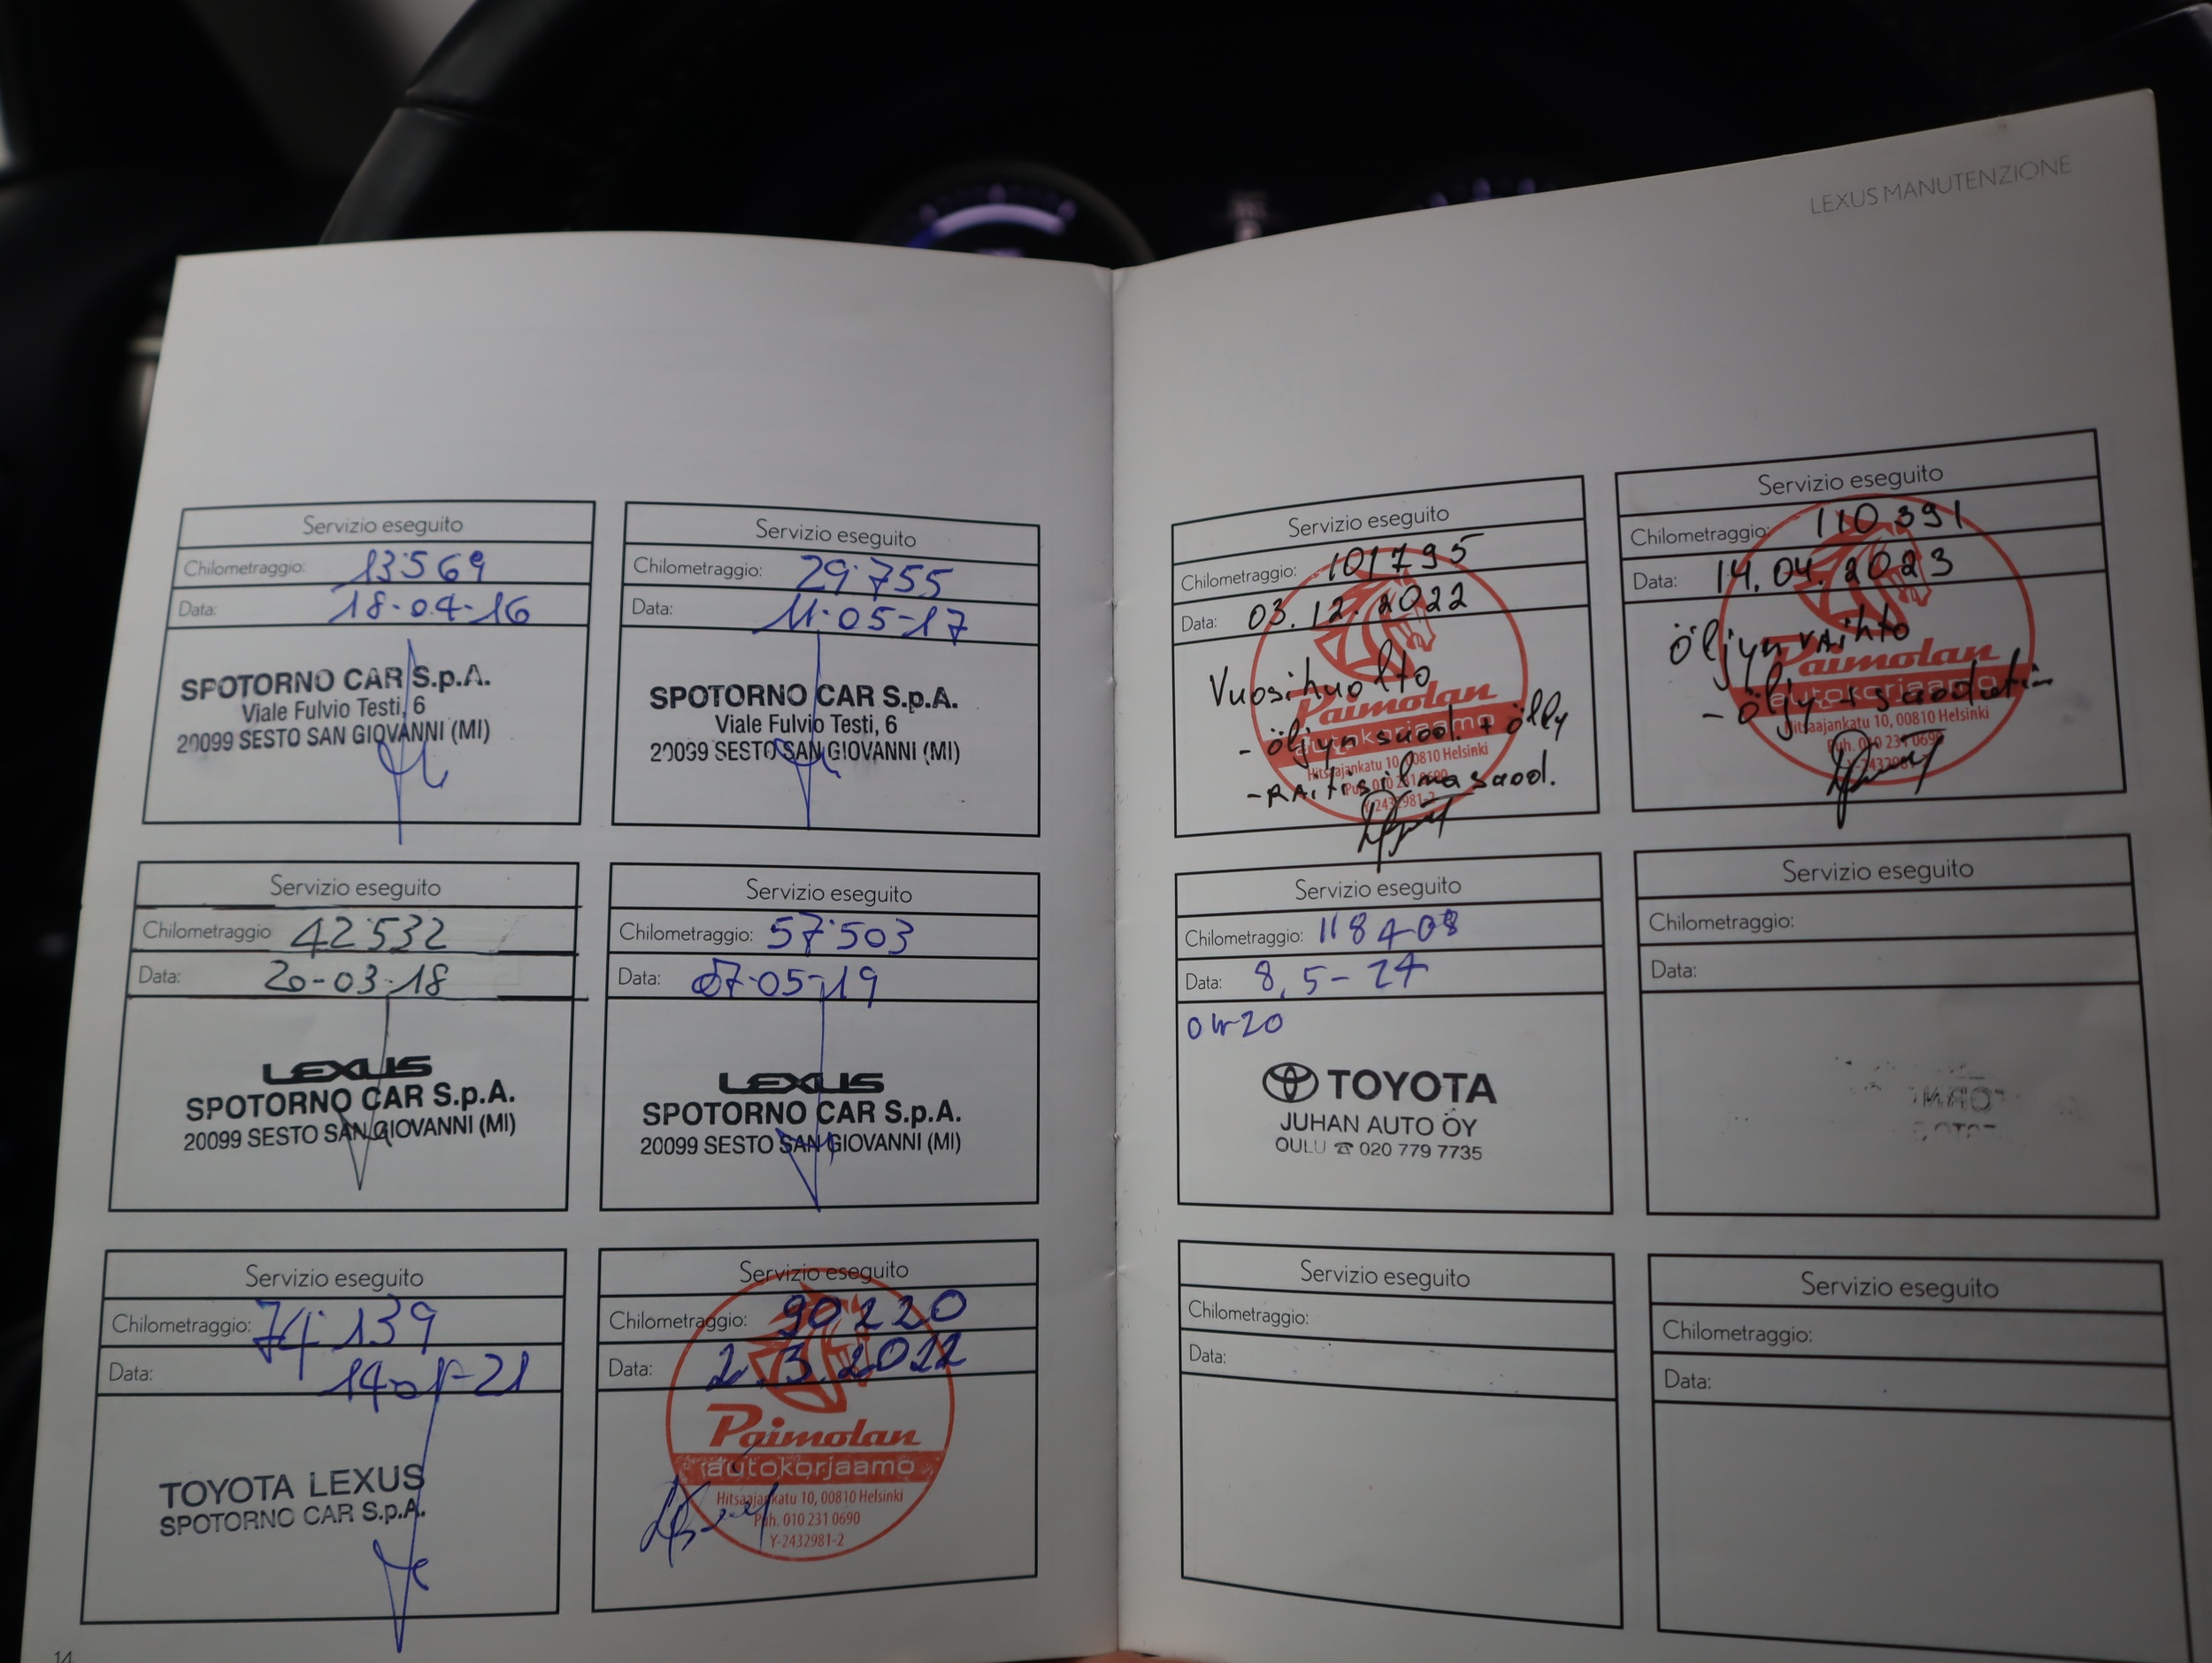 LEXUS MANUTENZIONE
Servizio eseguito
Chilometraggio: 13·569
Data: 18-04-16
SPOTORNO CAR S.p.A.
Viale Fulvio Testi, 6
20099 SESTO SAN GIOVANNI (MI)
Servizio eseguito
Chilometraggio: 29·755
Data: 11·05-17
SPOTORNO CAR S.p.A.
Viale Fulvio Testi, 6
20099 SESTO SAN GIOVANNI (MI)
Servizio eseguito
Chilometraggio 42·532
Data: 20-03-18
LEXUS
SPOTORNO CAR S.p.A.
20099 SESTO SAN GIOVANNI (MI)
Servizio eseguito
Chilometraggio: 57·503
Data: 07-05-19
LEXUS
SPOTORNO CAR S.p.A.
20099 SESTO SAN GIOVANNI (MI)
Servizio eseguito
Chilometraggio: 74·139
Data: 14-01-21
TOYOTA LEXUS
SPOTORNO CAR S.p.A.
Servizio eseguito
Chilometraggio: 90220
Data: 2.3.2022
Paimolan
autokorjaamo
Hitsaajankatu 10, 00810 Helsinki
Puh. 010 231 0690
Y-2432981-2
14
Servizio eseguito
Chilometraggio: 101795
Data: 03.12.2022
Vuosihuolto
Paimolan
autokorjaamo
- öljyn suod. + öljy
Hitsaajankatu 10, 00810 Helsinki
- RAitisilma suod.
Puh. 010 231 0690
Y-2432981-2
Servizio eseguito
Chilometraggio: 110391
Data: 14.04.2023
Öljyn vaihto
Paimolan
autokorjaamo
- öljy + suodatin
Hitsaajankatu 10, 00810 Helsinki
Puh. 010 231 0690
Y-2432981-2
Servizio eseguito
Chilometraggio: 118408
Data: 8,5-24
0w20
TOYOTA
JUHAN AUTO OY
OULU ☎ 020 779 7735
Servizio eseguito
Chilometraggio:
Data:
Servizio eseguito
Chilometraggio:
Data:
Servizio eseguito
Chilometraggio:
Data: